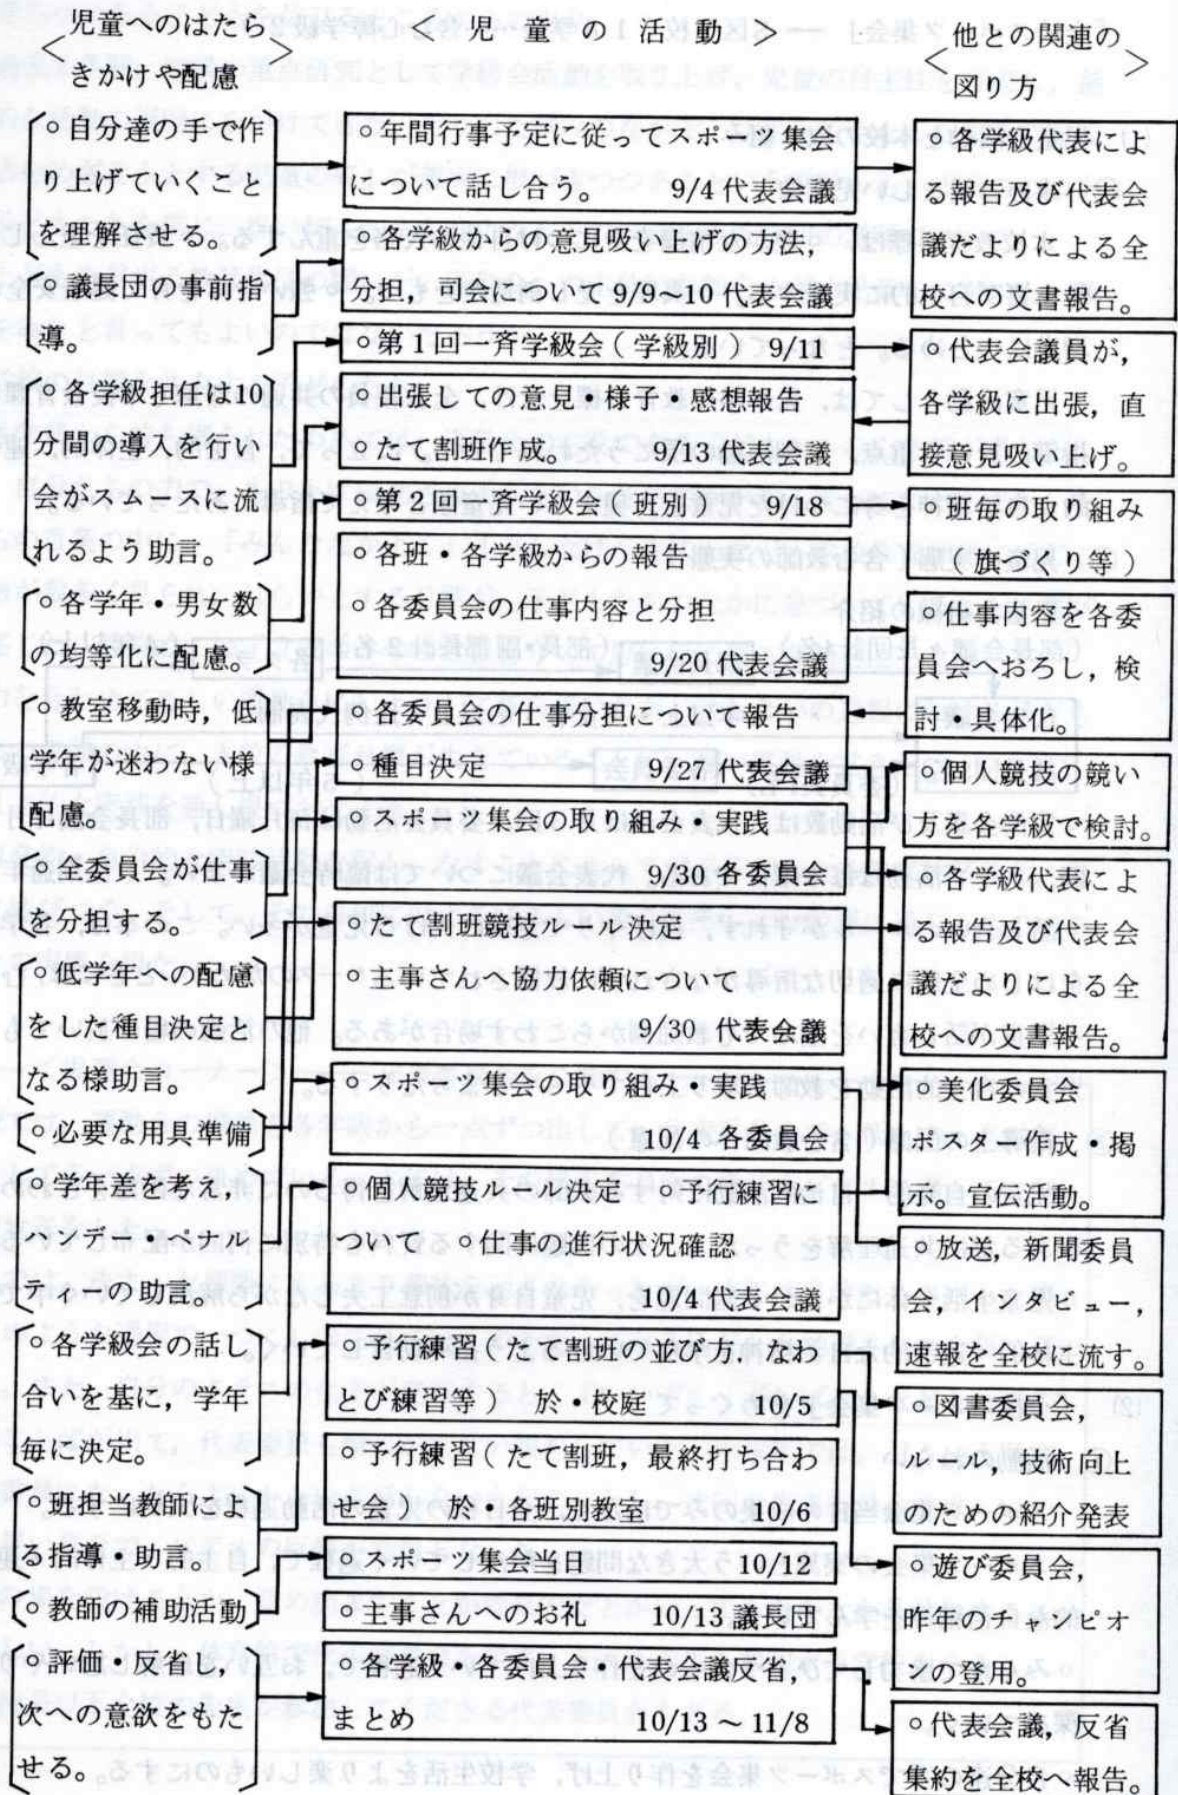 児童へのはたら
きかけや配慮
○自分達の手で作
り上げていくこと
を理解させる。
○議長団の事前指
導。
○各学級担任は10
分間の導入を行い
会がスムースに流
れるよう助言。
○各学年・男女数
の均等化に配慮。
○教室移動時，低
学年が迷わない様
配慮。
○全委員会が仕事
を分担する。
○低学年への配慮
をした種目決定と
なる様助言。
○必要な用具準備
○学年差を考え，
ハンディー・ペナル
ティーの助言。
○各学級会の話し
合いを基に，学年
毎に決定。
○班担当教師によ
る指導・助言。
○教師の補助活動
○評価・反省し，
次への意欲をもた
せる。
児童の活動
○年間行事予定に従ってスポーツ集会
について話し合う。 9/4代表会議
○各学級からの意見吸い上げの方法，
分担，司会について 9/9・10 代表会議
○第1回一斉学級会（学級別） 9/11
○出張しての意見・様子・感想報告
○たて割班作成。 9/13 代表会議
○第2回一斉学級会「班別」 9/18
○各班・各学級からの報告
○各委員会の仕事内容と分担
9/20 代表会議
○各委員会の仕事分担について報告
○種目決定 9/27 代表会議
○スポーツ集会の取り組み・実践
9/30 各委員会
○たて割班競技ルール決定
○主事さんへ協力依頼について
9/30 代表会議
○スポーツ集会の取り組み・実践
10/4 各委員会
○個人競技ルール決定 ○予行練習に
ついて ○仕事の進行状況確認
10/4代表会議
○予行練習（たて割班の並び方，なわ
とび練習等） 於・校庭 10/5
○予行練習（たて割班，最終打ち合わ
せ会 於・各班別教室 10/6
○スポーツ集会当日 10/12
○主事さんへのお礼 10/13 議長団
○各学級・各委員会・代表会議反省，
まとめ 10/13～11/8
他との関連の
図り方
○各学級代表によ
る報告及び代表会
議だよりによる全
校への文書報告。
○代表会議員が，
各学級に出張，直
接意見吸い上げ。
○班毎の取り組み
（旗づくり等）
○仕事内容を各委
員会へおろし，検
討・具体化。
○個人競技の競い
方を各学級で検討。
○各学級代表によ
る報告及び代表会
議だよりによる全
校への文書報告。
○美化委員会
ポスター作成・掲
示。宣伝活動。
○放送，新聞委員
会，インタビュー，
速報を全校に流す。
○図書委員会，
ルール，技術向上
のための紹介発表
○遊び委員会，
昨年のチャンピオ
ンの登用。
○代表会議，反省
集約を全校へ報告。